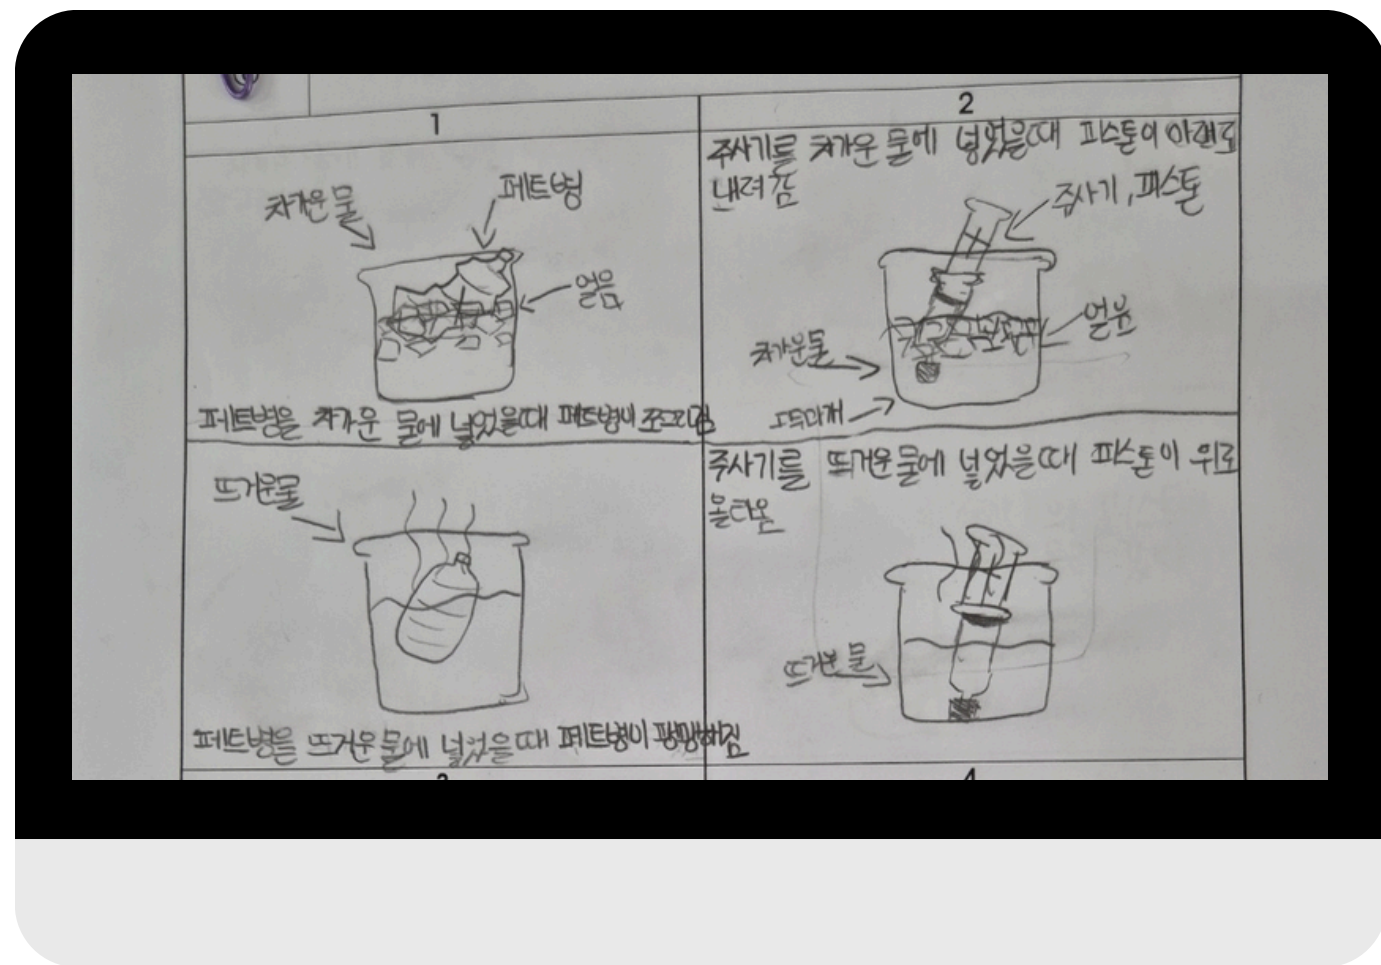 1
차가운 물
페트병
얼음
페트병을 차가운 물에 넣었을때 페트병이 쪼그라짐
뜨거운물
페트병을 뜨거운 물에 넣었을때 페트병이 팽팽해짐
2
주사기를 차가운 물에 넣었을때 피스톤이 아래로
내려감
주사기, 피스톤
얼음
차가운물
고무마개
주사기를 뜨거운물에 넣었을때 피스톤이 위로
올라옴
뜨거운 물